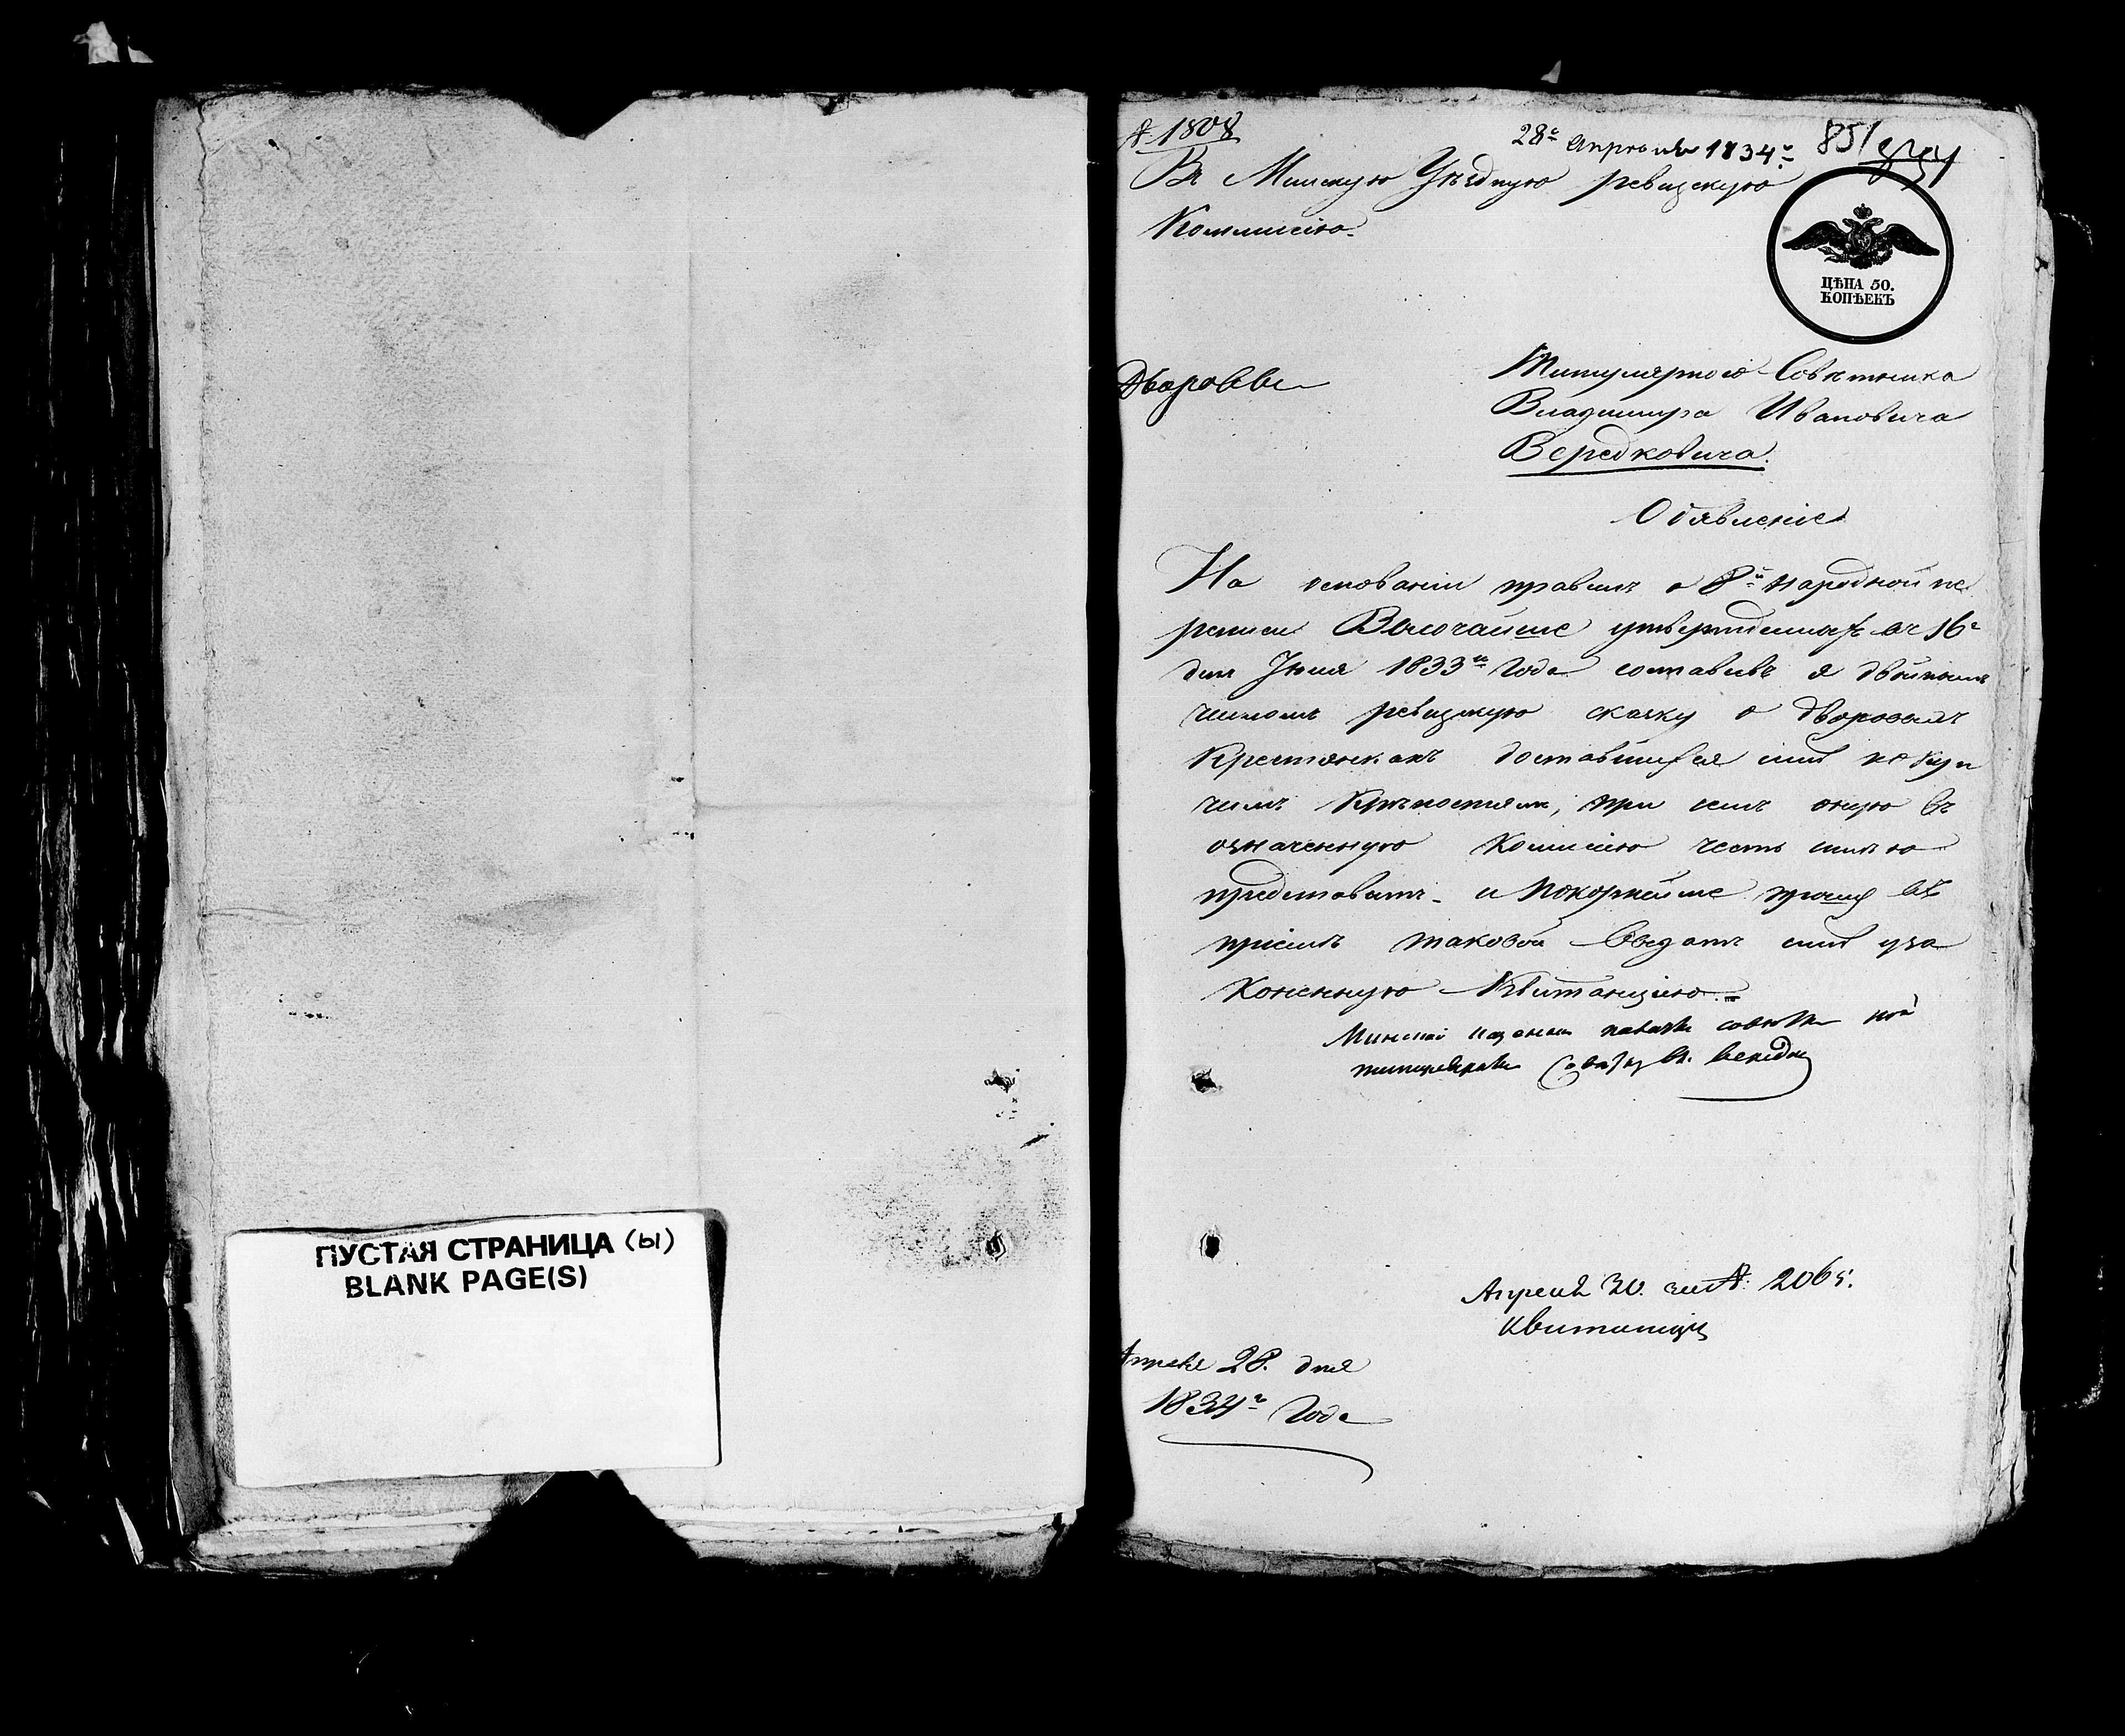 ПУСТАЯ СТРАНИЦА (ы)
BLANK PAGE(S)
№ 1808
28го Апреля 1834го
851
Въ Минскую Уѣздную ревизскую
Коммисію.
ЦѢНА 50.
КОПѢЕКЪ
Дворовые
Титулярного Совѣтника
Владимира Ивановича
Вередковича.
Объявленіе
На основаніи правилъ о 8й народной пе
реписи Высочайше утвержденныхъ въ 16й
день Іюня 1833го Года составивъ я двойнымъ
числомъ ревизскую сказку о дворовыхъ
Крестьянкахъ доставшихся мнѣ по куп
чимъ Крѣпостямъ, при семъ оную въ
означенную Комисію честь имѣю
представить и покорнѣйше прошу въ
пріемѣ таковой выдать мнѣ уза
коненную Квитанцію.
Минской казенной палаты
титулярный В.
Апреля 30. № 2065.
квитанція
Апреля 28. дня
1834го Года